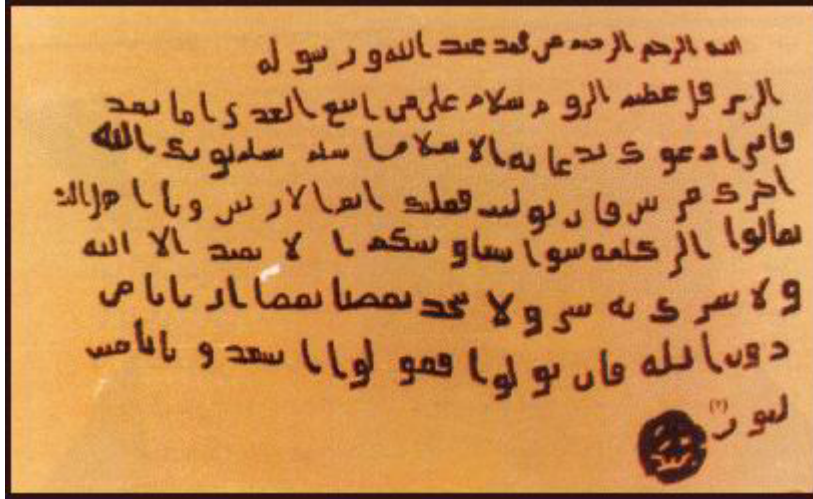 الله الرحمن الرحيم من محمد عبد الله ورسوله
الى هرقل عظيم الروم سلام على من اتبع الهدى اما بعد
فاني ادعوك بدعاية الاسلام اسلم تسلم يوتك الله
اجرك مرتين فان توليت فعليك اثم الاريسين ويا اهل
تعالوا الى كلمة سوا بيننا وبينكم الا نعبد الا الله
ولا نشرك به شيا ولا يتخذ بعضنا بعضا اربابا من
دون الله فان تولوا فقولوا اشهدوا بانا مس
لمون (٢)